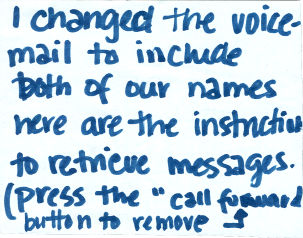 I changed the voice-
mail to include
both of our names
here are the instruction
to retrieve messages.
(press the " call forward
button to remove